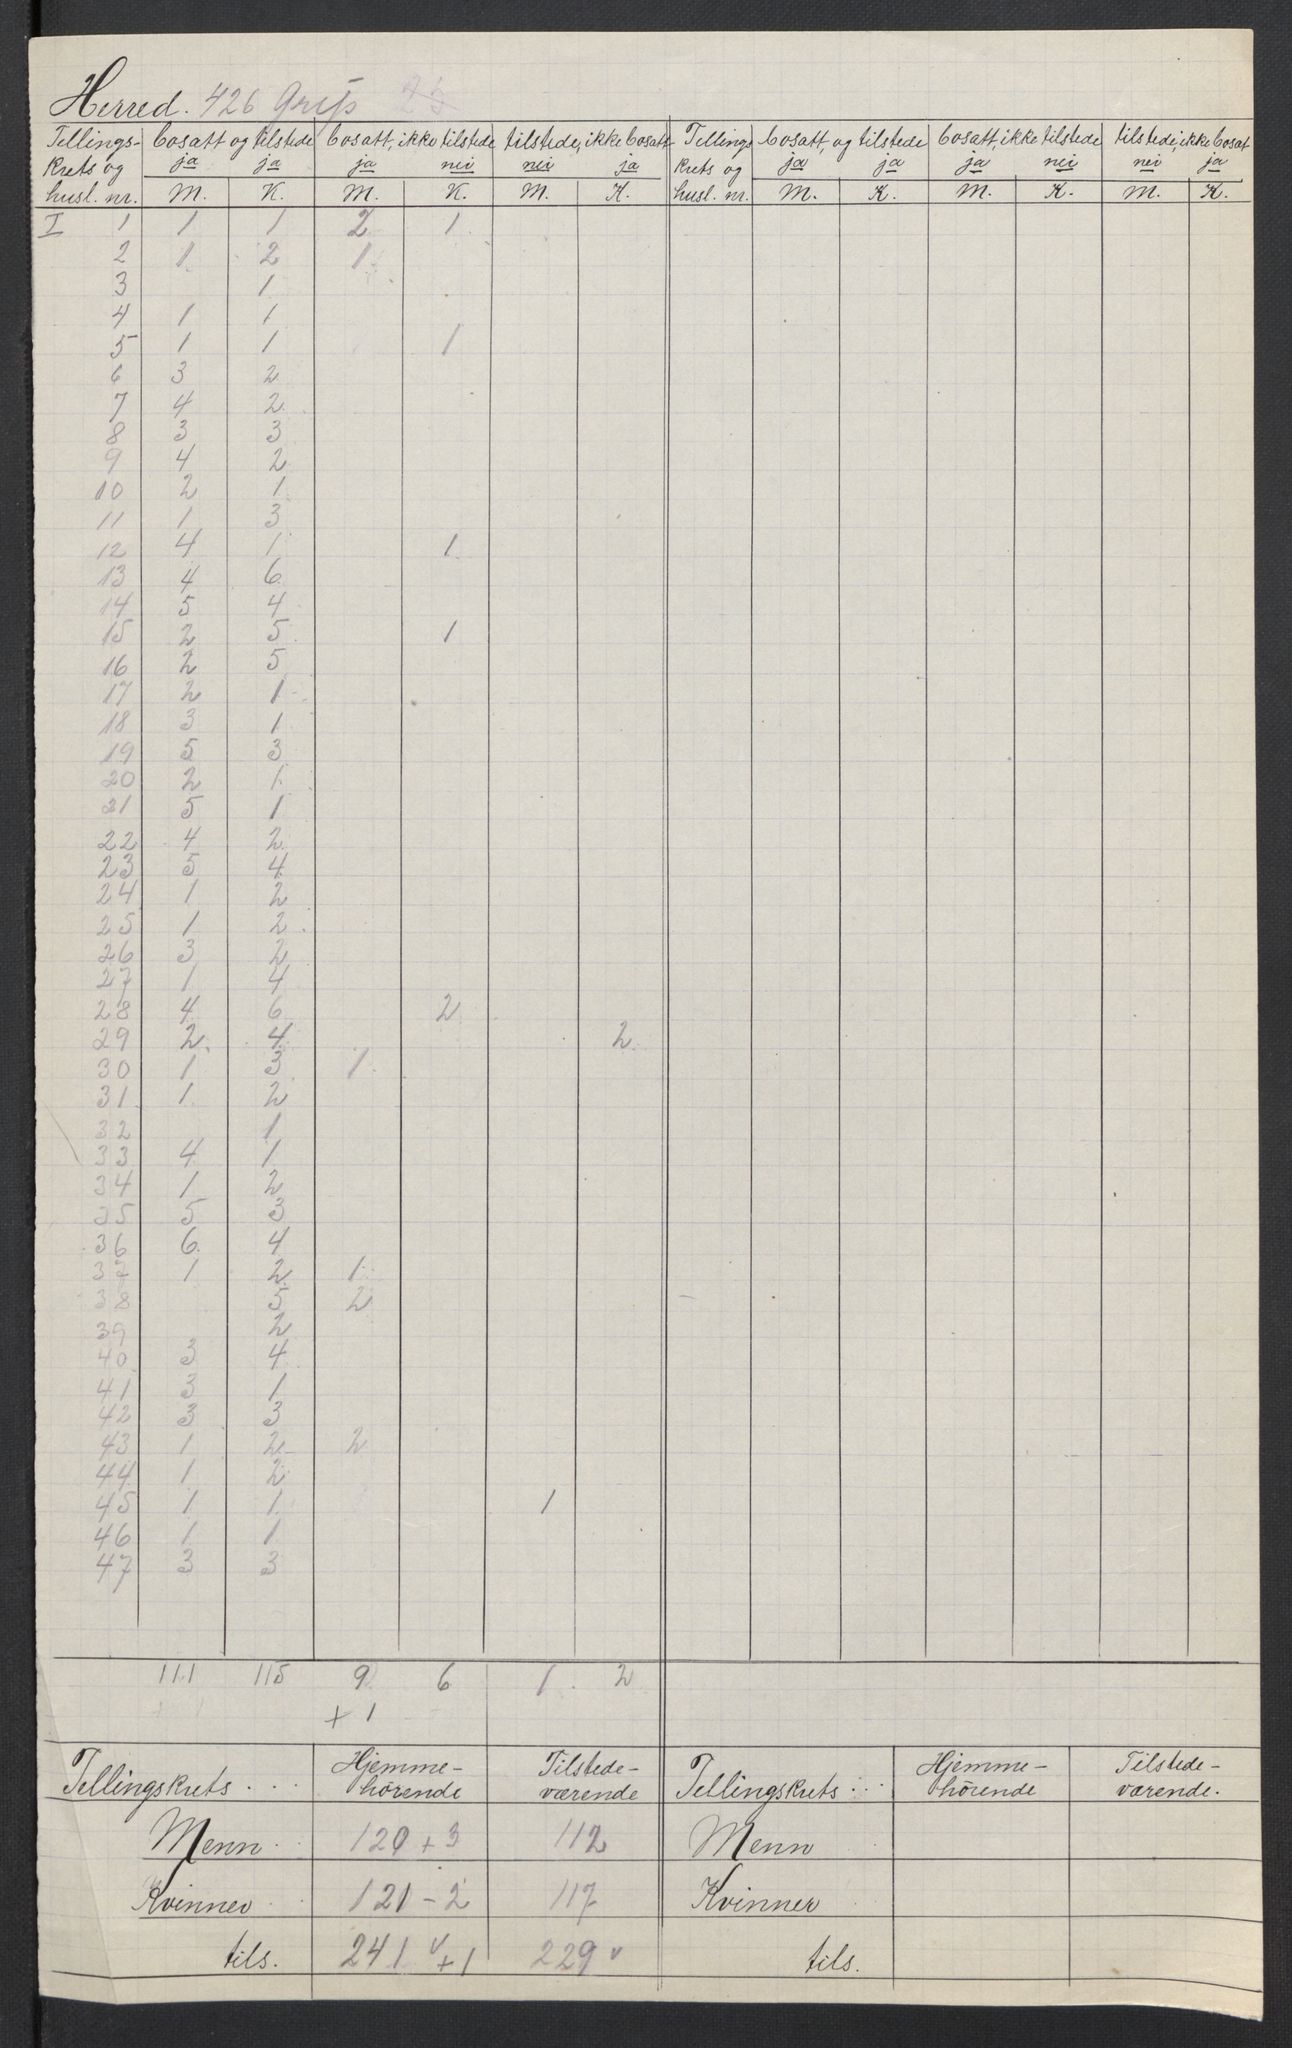 Herred. 426 Grip 25
Tellings- krets og husl. nr. | bosatt og tilstede | bosatt, ikke tilstede | tilstede, ikke bosatt | Tellings krets og husl. nr. | bosatt, og tilstede | bosatt, ikke tilstede | tilstede, ikke bosatt
ja ja ja nei nei ja ja ja ja nei nei ja
M. K. M. K. M. K. M. K. M. K. M. K.
I 1 1 1 2 1
2 1 2 1
3 1
4 1 1
5 1 1 1
6 3 2
7 4 2
8 3 3
9 4 2
10 2 1
11 1 3
12 4 1 1
13 4 6
14 5 4
15 2 5 1
16 2 5
17 2 1
18 3 1
19 5 3
20 2 1
21 5 1
22 4 2
23 5 4
24 1 2
25 1 2
26 3 2
27 1 4
28 4 6 2
29 2 4 2
30 1 3 1
31 1 2
32 1
33 4 1
34 1 2
35 5 3
36 6 4
37 1 2 1
38 5 2
39 2
40 3 4
41 3 1
42 3 3
43 1 2 2
44 1 2
45 1 1 1
46 1 1
47 3 3
111 115 9 6 1 2
+ 1
Tellingskrets . . . Hjemme- hörende Tilstede- værende Tellingskrets . . . Hjemme- hörende Tilstede- værende.
Menn 120 + 3 112 Menn
Kvinner 121 - 2 117 Kvinner
tils. 241 v + 1 229 v tils.